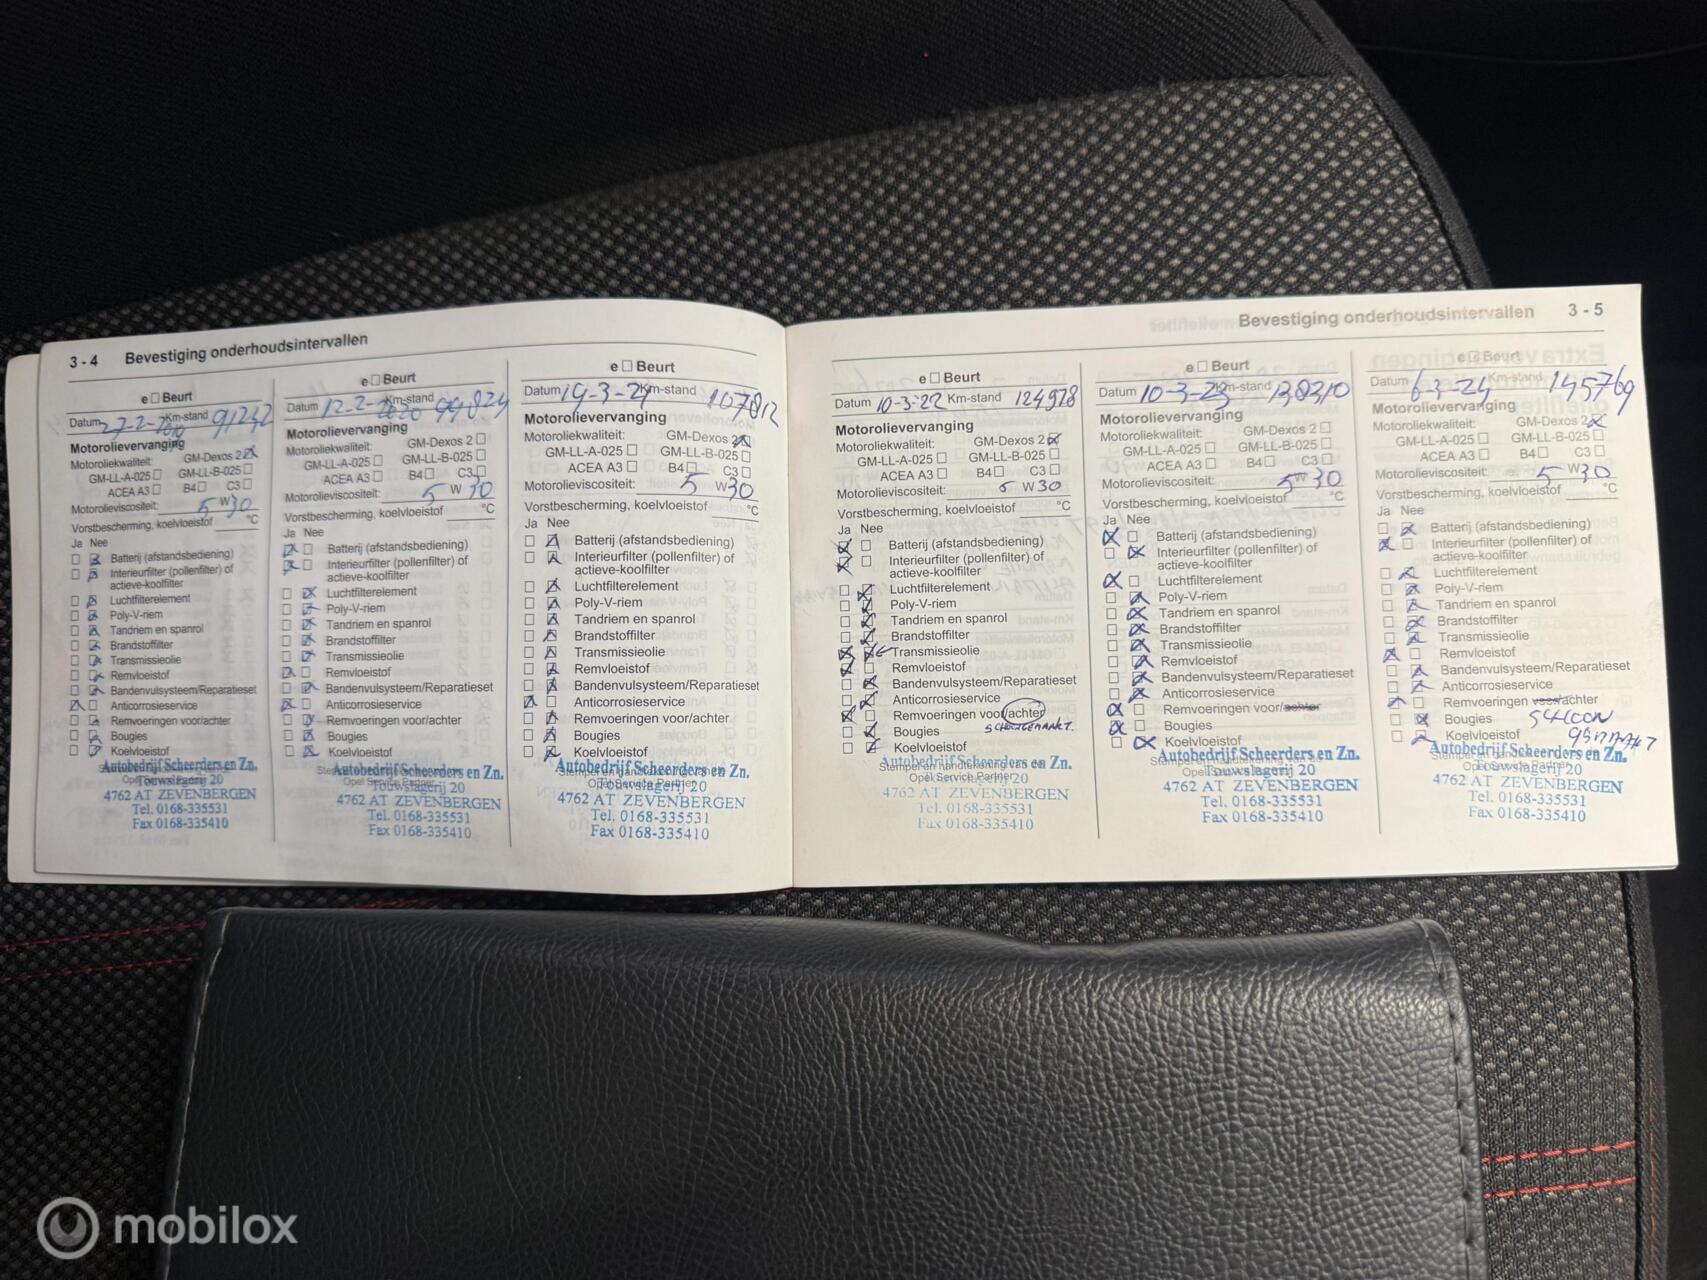 3 - 4 Bevestiging onderhoudsintervallen
e □ Beurt
Datum 27-2- Km-stand 91242
Motorolievervanging
Motoroliekwaliteit: GM-Dexos 2
GM-LL-A-025 GM-LL-B-025
ACEA A3 B4 C3
Motorolieviscositeit: 5 W 30
Vorstbescherming, koelvloeistof °C
Ja Nee
Batterij (afstandsbediening)
Interieurfilter (pollenfilter) of
actieve-koolfilter
Luchtfilterelement
Poly-V-riem
Tandriem en spanrol
Brandstoffilter
Transmissieolie
Remvloeistof
Bandenvulsysteem/Reparatieset
Anticorrosieservice
Remvoeringen voor/achter
Bougies
Koelvloeistof
Autobedrijf Scheerders en Zn.
Touwslagerij 20
4762 AT ZEVENBERGEN
Tel. 0168-335531
Fax 0168-335410
e □ Beurt
Datum 12-2-2020 Km-stand 99824
Motorolievervanging
Motoroliekwaliteit: GM-Dexos 2
GM-LL-A-025 GM-LL-B-025
ACEA A3 B4 C3
Motorolieviscositeit: 5 W 30
Vorstbescherming, koelvloeistof °C
Ja Nee
Batterij (afstandsbediening)
Interieurfilter (pollenfilter) of
actieve-koolfilter
Luchtfilterelement
Poly-V-riem
Tandriem en spanrol
Brandstoffilter
Transmissieolie
Remvloeistof
Bandenvulsysteem/Reparatieset
Anticorrosieservice
Remvoeringen voor/achter
Bougies
Koelvloeistof
Autobedrijf Scheerders en Zn.
Opel Service Partner
Touwslagerij 20
4762 AT ZEVENBERGEN
Tel. 0168-335531
Fax 0168-335410
e □ Beurt
Datum 19-3-21 Km-stand 107812
Motorolievervanging
Motoroliekwaliteit: GM-Dexos 2
GM-LL-A-025 GM-LL-B-025
ACEA A3 B4 C3
Motorolieviscositeit: 5 W 30
Vorstbescherming, koelvloeistof °C
Ja Nee
Batterij (afstandsbediening)
Interieurfilter (pollenfilter) of
actieve-koolfilter
Luchtfilterelement
Poly-V-riem
Tandriem en spanrol
Brandstoffilter
Transmissieolie
Remvloeistof
Bandenvulsysteem/Reparatieset
Anticorrosieservice
Remvoeringen voor/achter
Bougies
Koelvloeistof
Autobedrijf Scheerders en Zn.
Opel Service Partner
Touwslagerij 20
4762 AT ZEVENBERGEN
Tel. 0168-335531
Fax 0168-335410
Bevestiging onderhoudsintervallen 3 - 5
e □ Beurt
Datum 10-3-22 Km-stand 124928
Motorolievervanging
Motoroliekwaliteit: GM-Dexos 2
GM-LL-A-025 GM-LL-B-025
ACEA A3 B4 C3
Motorolieviscositeit: 5 W 30
Vorstbescherming, koelvloeistof °C
Ja Nee
Batterij (afstandsbediening)
Interieurfilter (pollenfilter) of
actieve-koolfilter
Luchtfilterelement
Poly-V-riem
Tandriem en spanrol
Brandstoffilter
Transmissieolie
Remvloeistof
Bandenvulsysteem/Reparatieset
Anticorrosieservice
Remvoeringen voor/achter
Bougies
Koelvloeistof
Autobedrijf Scheerders en Zn.
Opel Service Partner
4762 AT ZEVENBERGEN
Tel. 0168-335531
Fax 0168-335410
e □ Beurt
Datum 10-3-23 Km-stand 138310
Motorolievervanging
Motoroliekwaliteit: GM-Dexos 2
GM-LL-A-025 GM-LL-B-025
ACEA A3 B4 C3
Motorolieviscositeit: 5 W 30
Vorstbescherming, koelvloeistof °C
Ja Nee
Batterij (afstandsbediening)
Interieurfilter (pollenfilter) of
actieve-koolfilter
Luchtfilterelement
Poly-V-riem
Tandriem en spanrol
Brandstoffilter
Transmissieolie
Remvloeistof
Bandenvulsysteem/Reparatieset
Anticorrosieservice
Remvoeringen voor/achter
Bougies
Koelvloeistof
Autobedrijf Scheerders en Zn.
Touwslagerij 20
4762 AT ZEVENBERGEN
Tel. 0168-335531
Fax 0168-335410
e □ Beurt
Datum 6-3-24 Km-stand 145769
Motorolievervanging
Motoroliekwaliteit: GM-Dexos 2
GM-LL-A-025 GM-LL-B-025
ACEA A3 B4 C3
Motorolieviscositeit: 5 W 30
Vorstbescherming, koelvloeistof °C
Ja Nee
Batterij (afstandsbediening)
Interieurfilter (pollenfilter) of
actieve-koolfilter
Luchtfilterelement
Poly-V-riem
Tandriem en spanrol
Brandstoffilter
Transmissieolie
Remvloeistof
Bandenvulsysteem/Reparatieset
Anticorrosieservice
Remvoeringen voor/achter
Bougies
Koelvloeistof
Autobedrijf Scheerders en Zn.
Touwslagerij 20
4762 AT ZEVENBERGEN
Tel. 0168-335531
Fax 0168-335410
mobilox